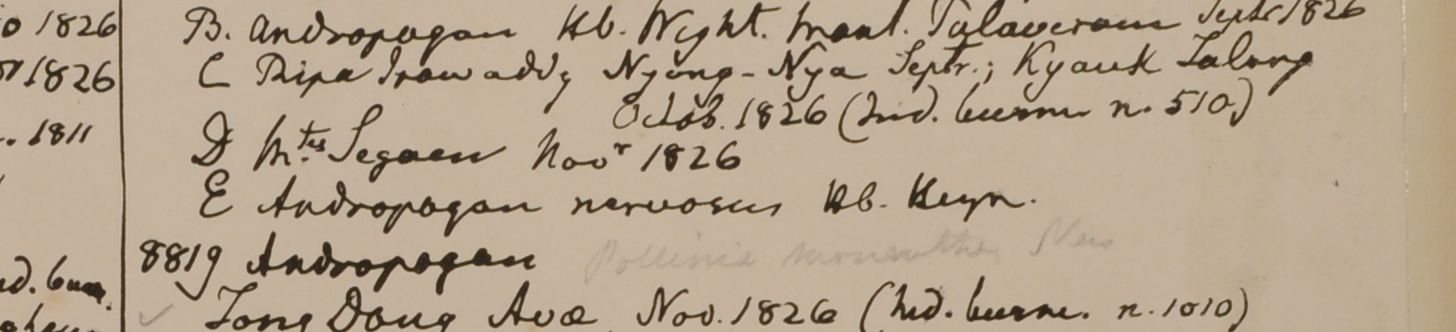 o 1826
B. Andropogon Hb. Wight. mont. Talaveram Septr 1826
1826
C Ripa Irawaddy Nyong-Nya Septr.; Kyauk Talong
Octob. 1826 (Ind. burm. n. 510)
. 1811
D Mtes Segaen Novr 1826
E Andropogon nervosus Hb. Heyn.
8819 Andropogon Pollinia monantha Nees
d. burm.
Tong Dong Avae Nov. 1826 (Ind. burm. n. 1010)